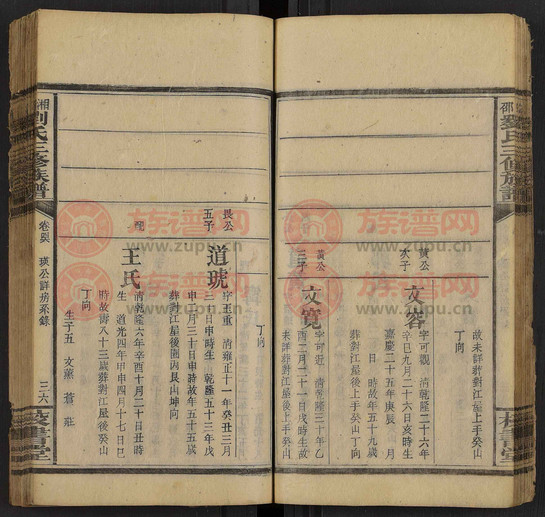 故未詳葬對江屋後上手癸山
丁向
黃公
次子
文容
字可觀 清乾隆二十六年
辛巳九月二十六日亥時生
嘉慶二十五年庚辰 月
日 時故年五十九歲
葬對江屋後上手癸山丁向
黃公
三子
文寬
字可近 清乾隆三十年乙
酉二月二十一日戌時生故
未詳葬對江屋後上手癸山
丁向
長公
五子
道琥
字玉重 清雍正十一年癸丑三月
三十日申時生 乾隆五十三年戊
申十月三十日申時故年五十五歲
葬對江屋後園內艮山坤向
配
王氏
清乾隆六年辛酉十月二十日丑時
生 道光四年甲申四月十七日巳
時故壽八十三歲葬對江屋後癸山
丁向
生子五 文 蒼 莊
湘
劉氏三修族譜
卷
瑛公詳房系錄
三六
校書堂
邵
劉氏三修族譜
校書堂
族谱网
www.zupu.cn
族谱网
www.zupu.cn